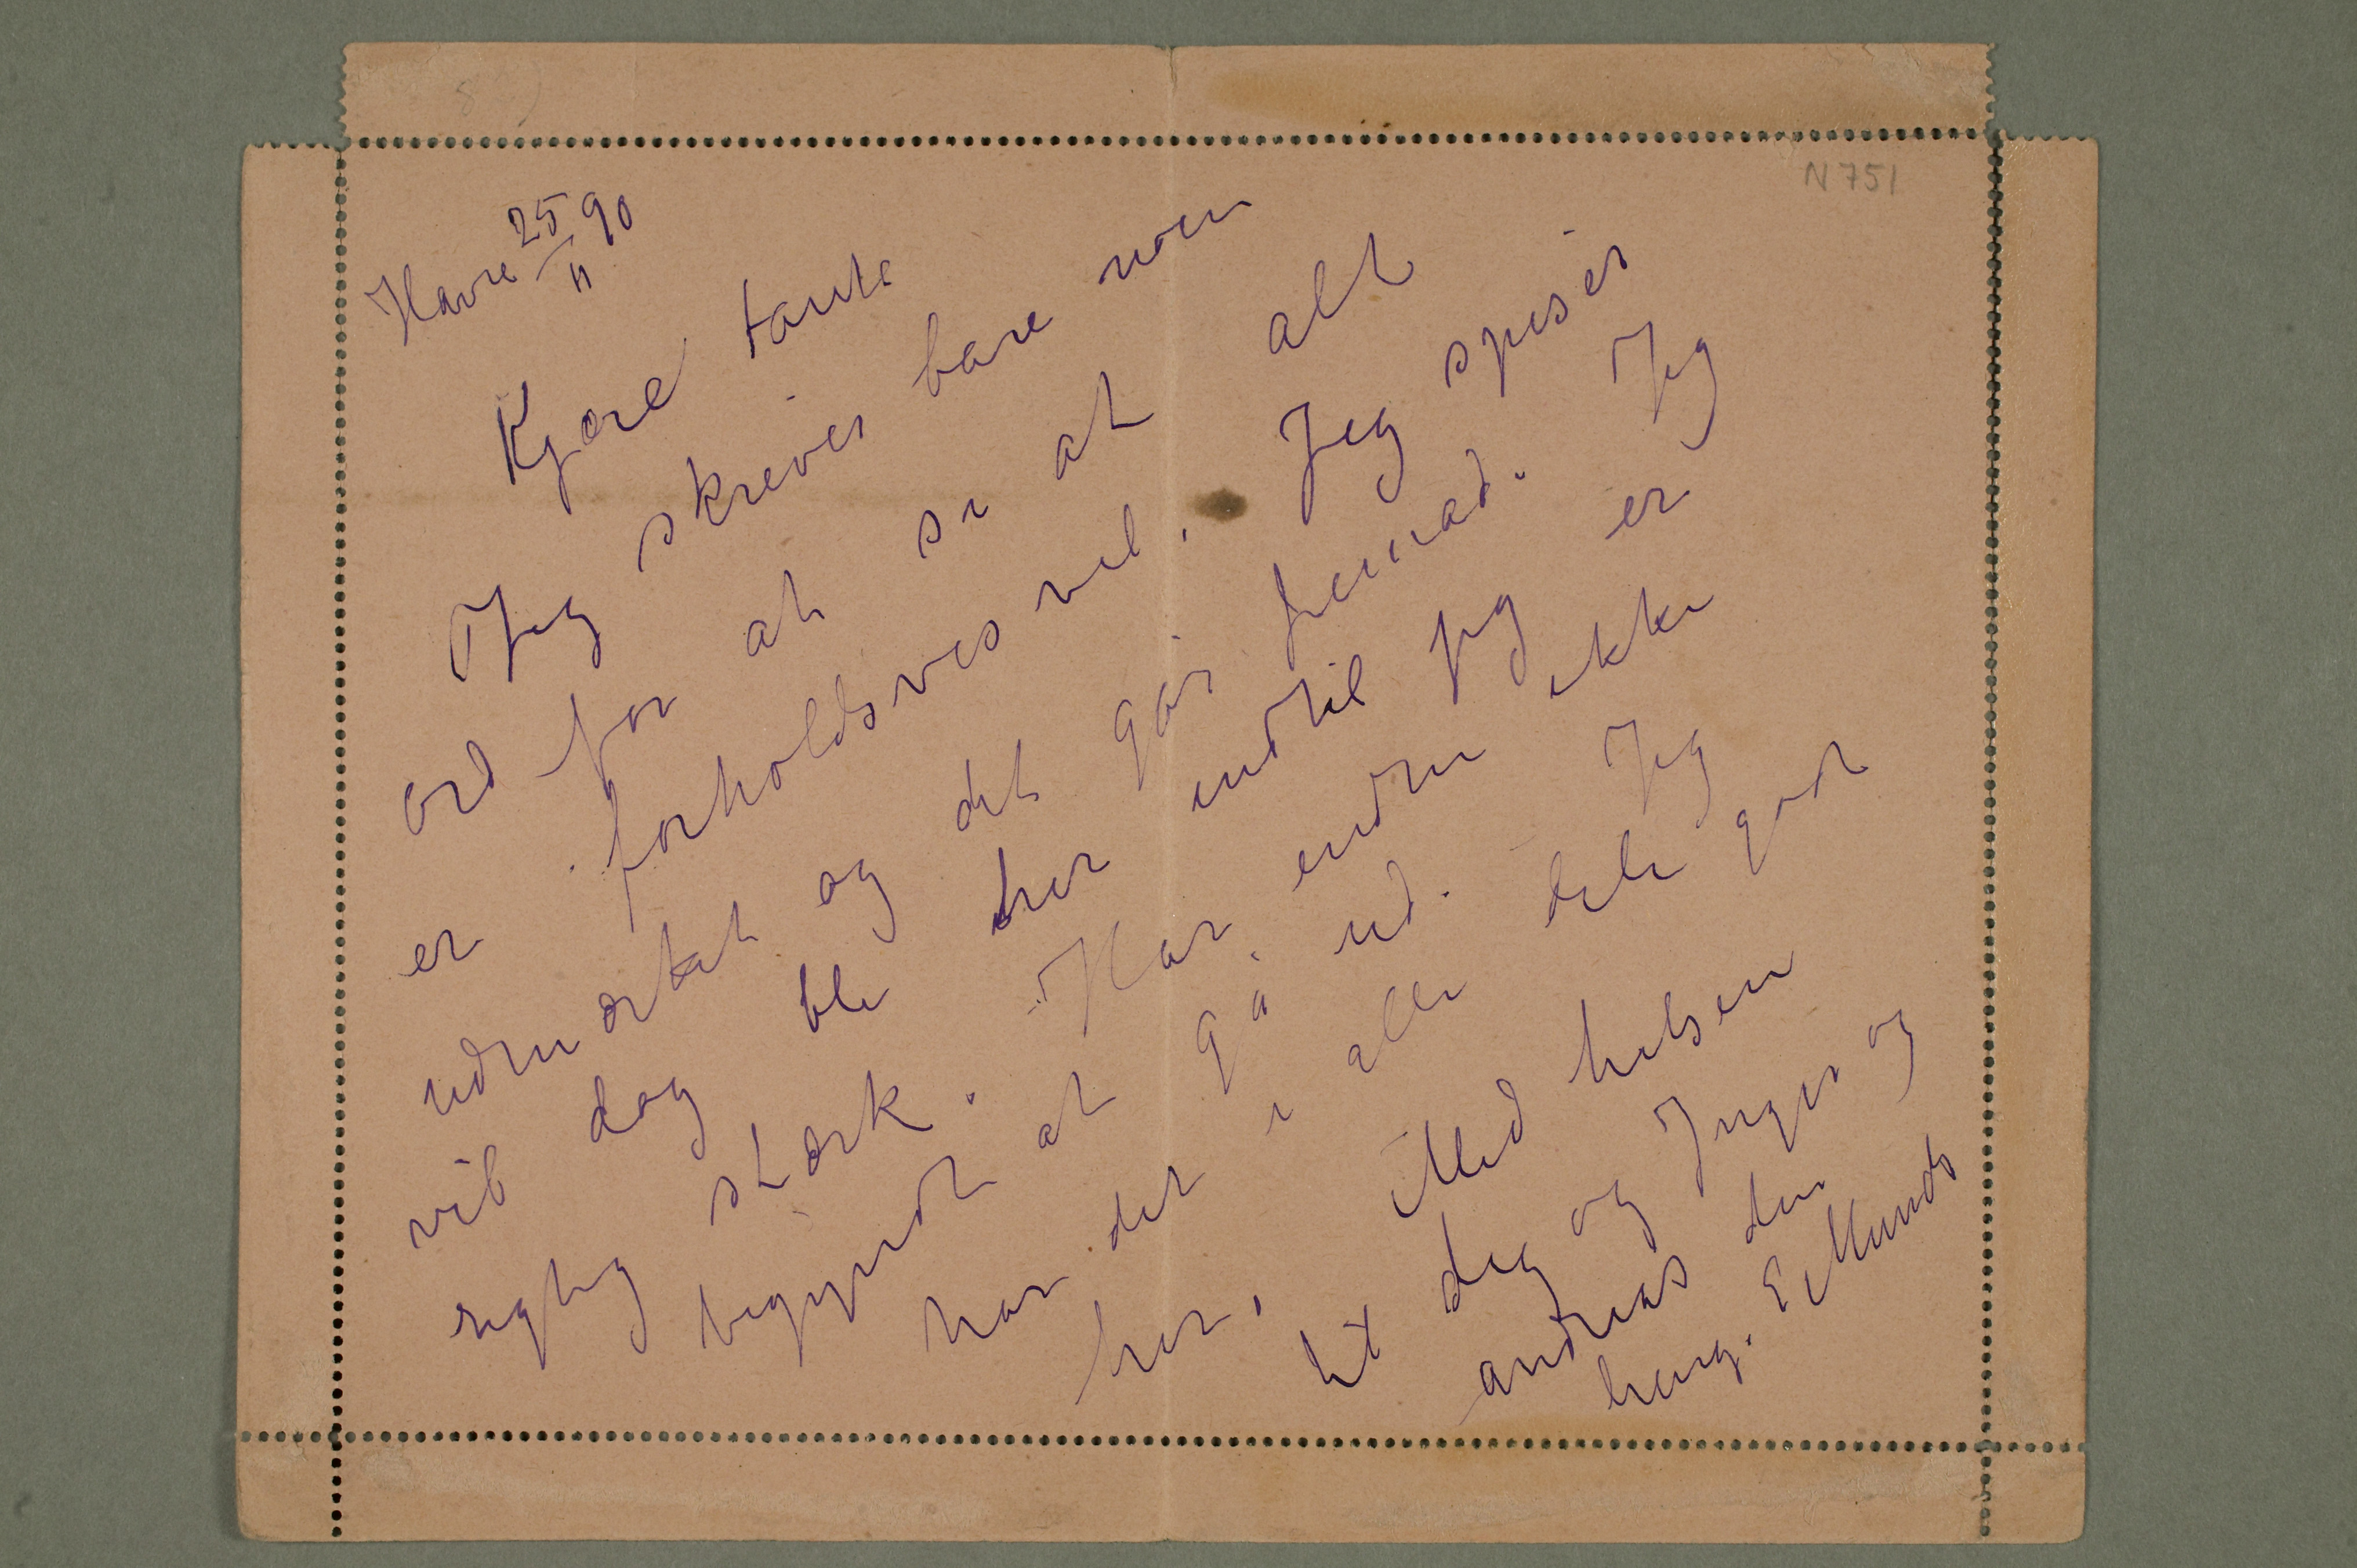 8)
N 751
Havre 25/11 90
Kjære tante
Jeg skriver bare noen
ord for at si at alt
er forholdsvis vel. Jeg spiser
udmærket og det går fremad. Jeg
vil dog bli her indtil jeg er
rigtig stærk. Har endnu ikke
begyndt at gå ud. Jeg
har det i alle dele godt
her, Med helsen
til dig og Inger og
andreas din
heng. E Munch